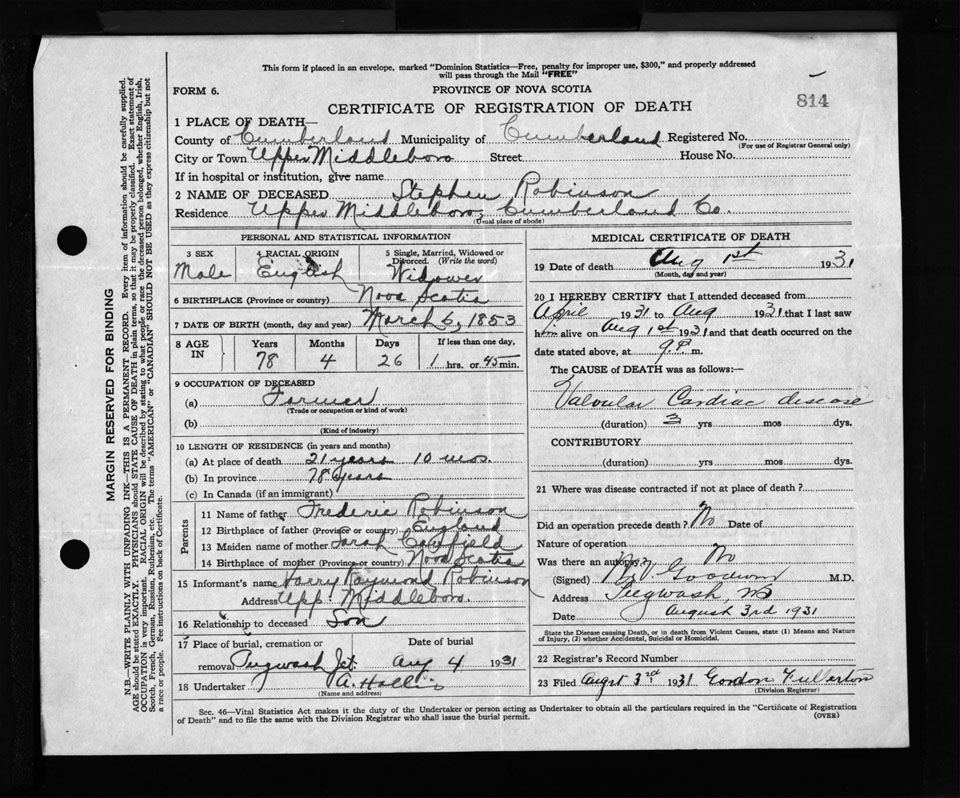 This form if placed in an envelope, marked "Dominion Statistics—Free, penalty for improper use, $300," and properly addressed
will pass through the Mail "FREE"
FORM 6.
PROVINCE OF NOVA SCOTIA
814
CERTIFICATE OF REGISTRATION OF DEATH
1 PLACE OF DEATH—
County of Cumberland Municipality of Cumberland Registered No.
(For use of Registrar General only)
City or Town Upper Middleboro Street House No.
If in hospital or institution, give name
2 NAME OF DECEASED Stephen Robinson
Residence Upper Middleboro, Cumberland Co.
(Usual place of abode)
PERSONAL AND STATISTICAL INFORMATION
3 SEX 4 RACIAL ORIGIN 5 Single, Married, Widowed or
Divorced. (Write the word)
Male English Widower
6 BIRTHPLACE (Province or country) Nova Scotia
7 DATE OF BIRTH (month, day and year) March 6, 1853
8 AGE IN Years Months Days If less than one day,
78 4 26 1 hrs. or 45 min.
9 OCCUPATION OF DECEASED
(a) Farmer
(Trade or occupation or kind of work)
(b)
(Kind of industry)
10 LENGTH OF RESIDENCE (in years and months)
(a) At place of death 21 years 10 mos.
(b) In province 78 years
(c) In Canada (if an immigrant)
Parents
11 Name of father Frederic Robinson
12 Birthplace of father (Province or country) England
13 Maiden name of mother Sarah
14 Birthplace of mother (Province or country) Nova Scotia
15 Informant's name Harry Raymond Robinson
Address Upp. Middleboro.
16 Relationship to deceased Son
17 Place of burial, cremation or Date of burial
removal Pugwash Jct. Aug 4 1931
18 Undertaker A. Hollis
(Name and address)
MEDICAL CERTIFICATE OF DEATH
19 Date of death Aug 1st 1931
(Month, day and year)
20 I HEREBY CERTIFY that I attended deceased from
April 1931 to Aug 1931 that I last saw
him alive on Aug 1st 1931 and that death occurred on the
date stated above, at 9 P. m.
The CAUSE of DEATH was as follows:—
Valvular Cardiac disease
(duration) 3 yrs mos dys.
CONTRIBUTORY
(duration) yrs. mos. dys.
21 Where was disease contracted if not at place of death?
Did an operation precede death? No Date of
Nature of operation
Was there an autopsy? No
(Signed) Goodwin M.D.
Address Pugwash NS
Date August 3rd 1931
State the Disease causing Death, or in death from Violent Causes, state (1) Means and Nature
of Injury, (2) whether Accidental, Suicidal or Homicidal.
22 Registrar's Record Number
23 Filed Augst 3rd 1931 Gordon Fullerton
(Division Registrar)
Sec. 46—Vital Statistics Act makes it the duty of the Undertaker or person acting as Undertaker to obtain all the particulars required in the "Certificate of Registration
of Death" and to file the same with the Division Registrar who shall issue the burial permit.
(OVER)
MARGIN RESERVED FOR BINDING
N.B.—WRITE PLAINLY WITH UNFADING INK—THIS IS A PERMANENT RECORD. Every item of information should be carefully supplied.
AGE should be stated EXACTLY. PHYSICIANS should STATE CAUSE OF DEATH in plain terms, so that it may be properly classified. Exact statement of
OCCUPATION is very important. RACIAL ORIGIN will be described by stating to what people or race the deceased person belonged, whether English, Irish,
Scotch, French, German, Russian, Ruthenian, etc. The terms "AMERICAN" or "CANADIAN" SHOULD NOT BE USED as they express citizenship but not
a race or people. See instructions on back of Certificate.